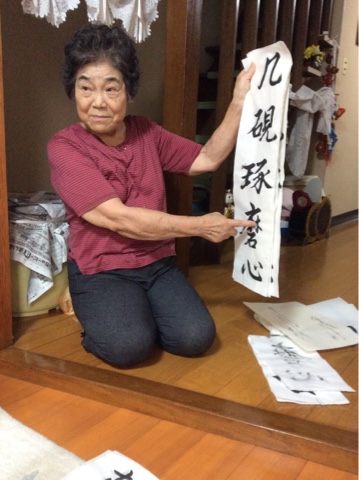 几硯琢磨心